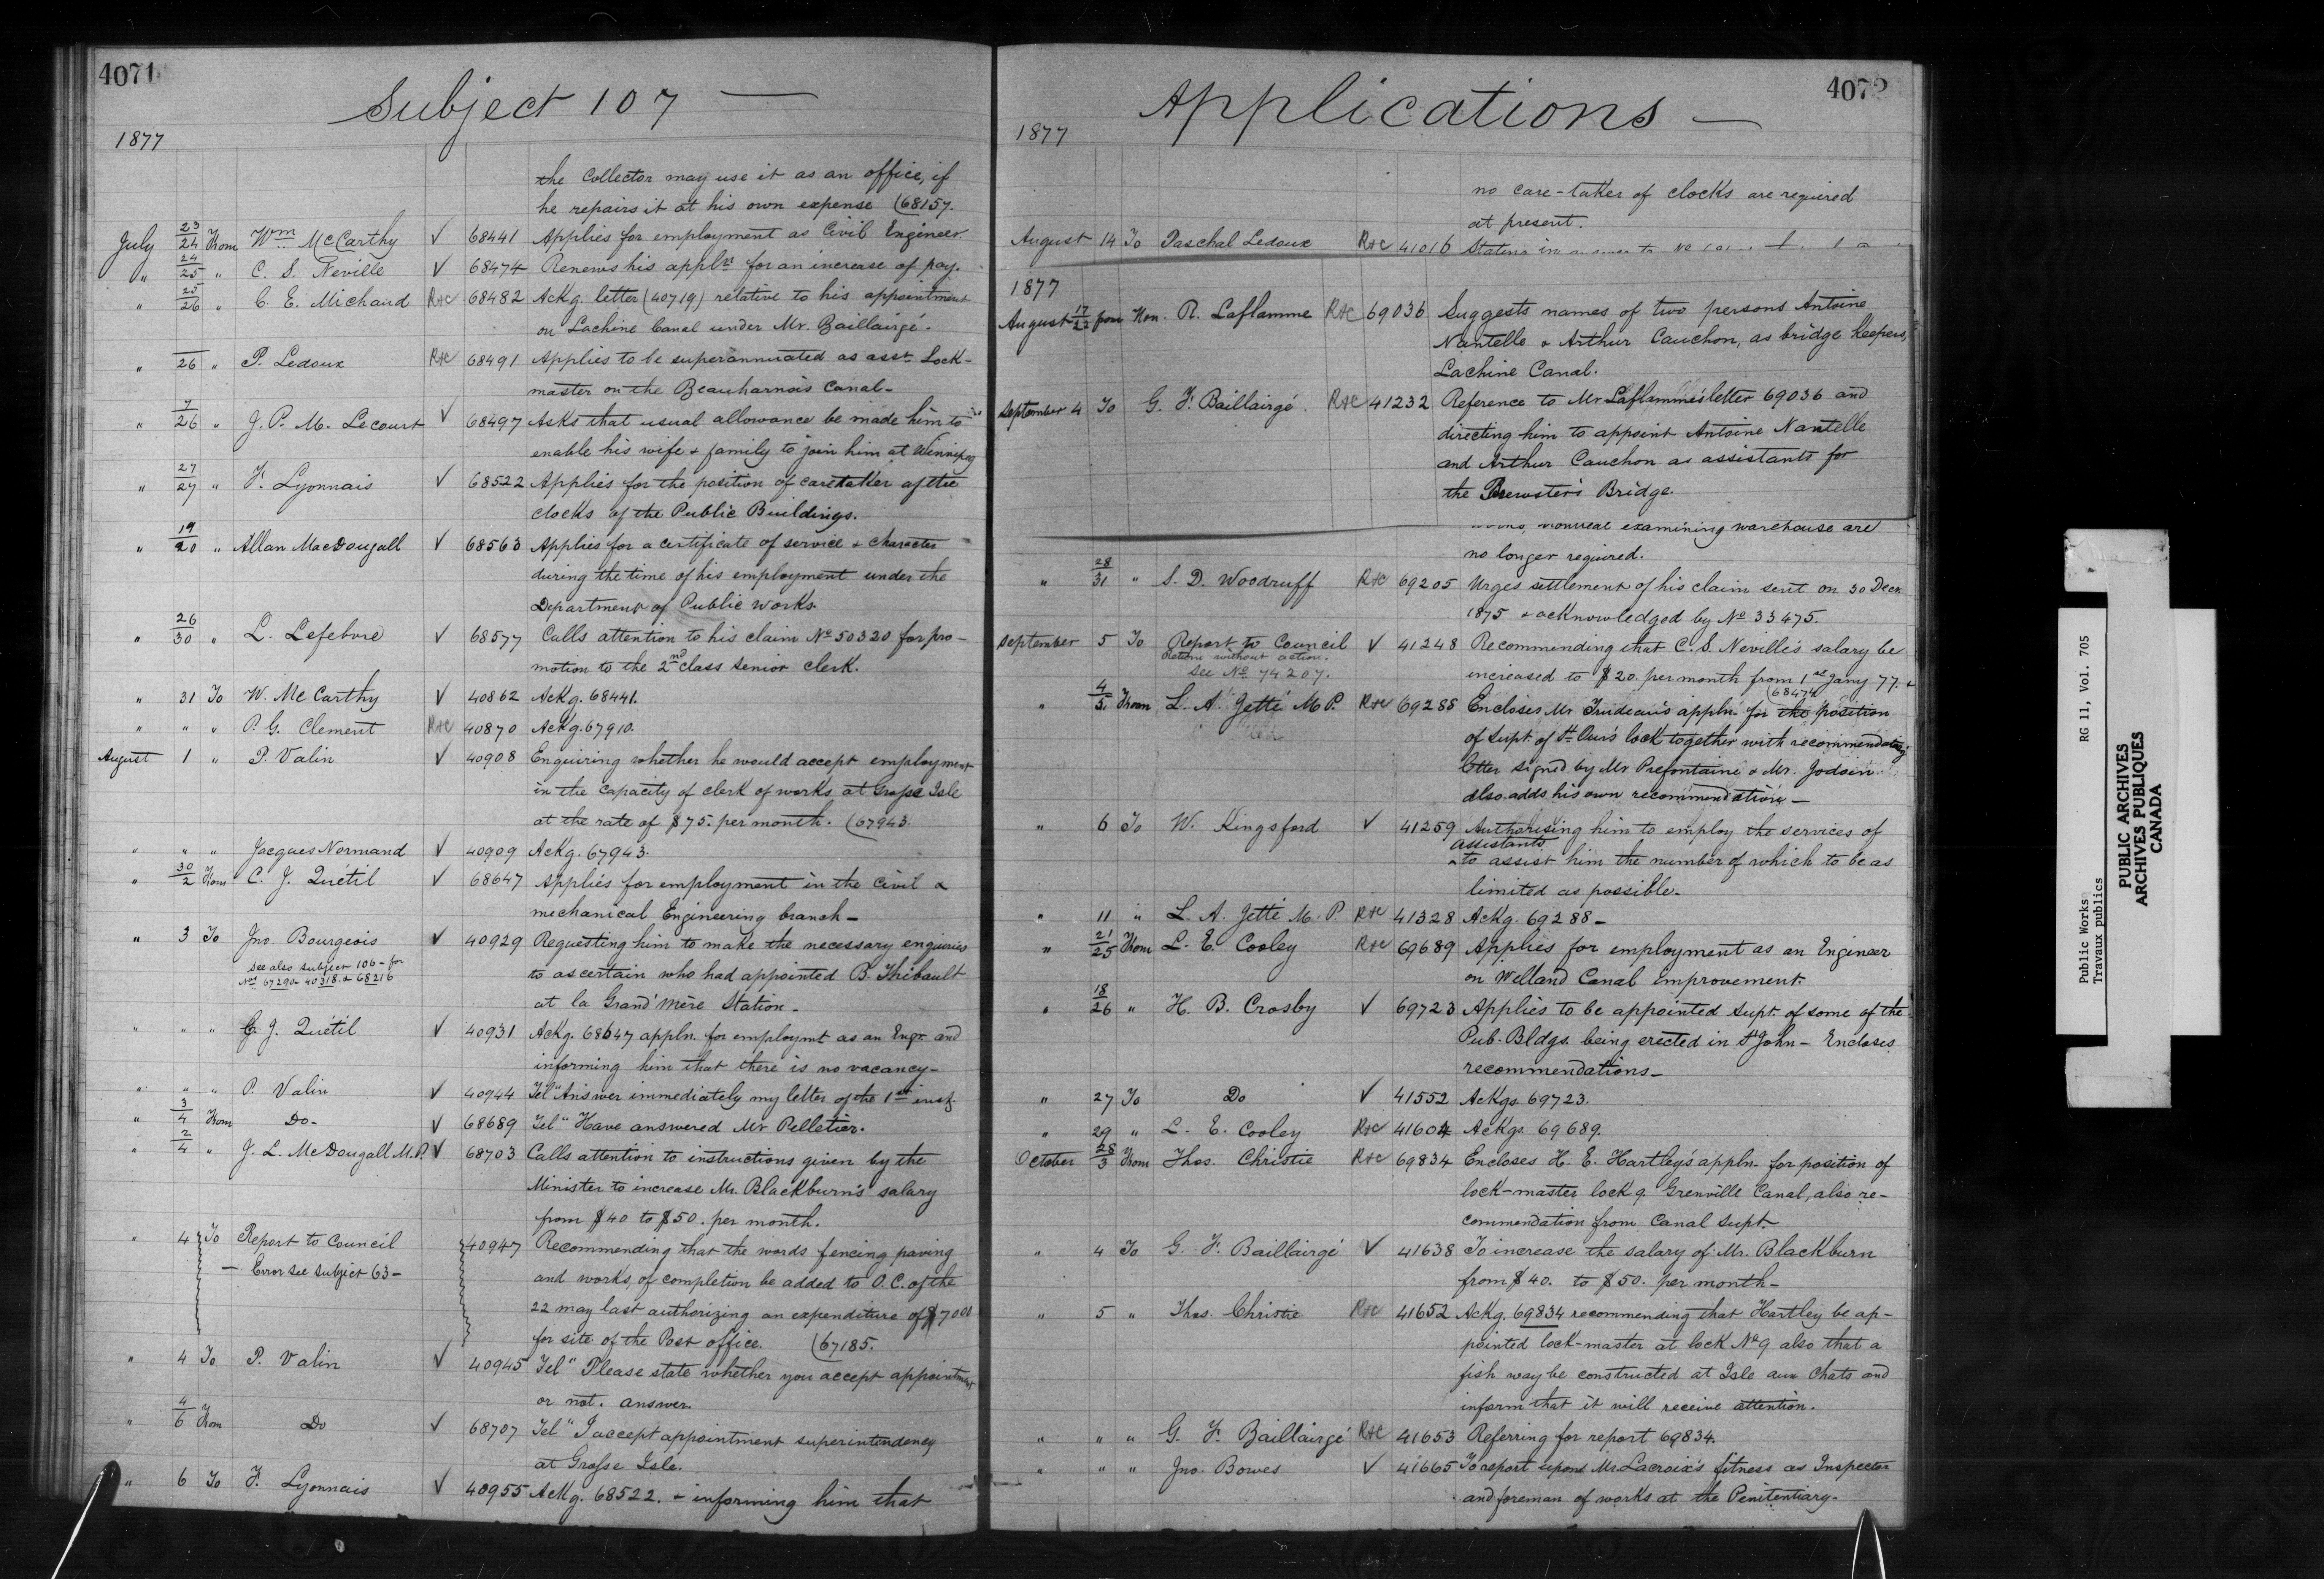 4071
Subject 107 —
1877
the Collector may use it as an office, if
he repairs it at his own expense (68157.
July 23/24 From Wm McCarthy √ 68441 Applies for employment as Civil Engineer.
" 24/25 " C. S. Neville √ 68474 Renews his appln for an increase of pay.
" 25/26 " C. E. Michaud R&C 68482 Ackg. letter (40719) relative to his appointment
on Lachine Canal under Mr. Baillairgé.
" 26 " P. Ledoux R&C 68491 Applies to be superannuated as asst Lock-
master on the Beauharnois Canal.
" 7/26 " J. P. M. Lecourt √ 68497 Asks that usual allowance be made him to
enable his wife & family to join him at Winnipeg
" 27/27 " F. Lyonnais √ 68522 Applies for the position of caretaker of the
clocks of the Public Buildings.
" 19/20 " Allan MacDougall √ 68563 Applies for a certificate of service & character
during the time of his employment under the
Department of Public Works.
" 26/30 " L. Lefebvre √ 68577 Calls attention to his claim No 50320 for pro-
motion to the 2nd class senior clerk.
" 31 To W. McCarthy √ 40862 Ackg. 68441.
" " " P. G. Clement R&C 40870 Ackg. 67910.
August 1 " P. Valin √ 40908 Enquiring whether he would accept employment
in the capacity of clerk of works at Grosse Isle
at the rate of $75. per month. (67943.
" " " Jacques Normand √ 40909 Ackg. 67943.
" 30/2 From C. J. Quétil √ 68647 Applies for employment in the Civil &
mechanical Engineering branch —
" 3 To Jno. Bourgeois √ 40929 Requesting him to make the necessary enquiries
see also subject 106 - for
Nos 67290 40318 & 68216
to ascertain who had appointed B. Thibault
at la Grand'mère Station -
" " " C. J. Quétil √ 40931 Ackg. 68647 appln. for employmt as an Engr. and
informing him that there is no vacancy -
" " " P. Valin √ 40944 Tel "Answer immediately my letter of the 1st inst.
" 3/4 From Do - √ 68689 Tel "Have answered Mr Pelletier.
" 2/4 " J. L. McDougall M.P. √ 68703 Calls attention to instructions given by the
Minister to increase Mr. Blackburn's salary
from $40 to $50. per month.
" 4 To Report to Council 40947 Recommending that the words fencing paving
— Error see Subject 63 -
and works, of completion be added to O.C. of the
22 may last authorizing an expenditure of $7000
for site of the Post office. (67185.
" 4 To P. Valin √ 40945 Tel "Please state whether you accept appointment
or not. answer.
" 4/6 From Do √ 68707 Tel "I accept appointment superintendency
at Grosse Isle.
" 6 To F. Lyonnais √ 40955 Ackg. 68522. & informing him that
4072
Applications —
1877
no care-taker of clocks are required
at present.
August 14 To Paschal Ledoux R&C 41016 Stating in answer to No
1877
August 17/22 from Hon. R. Laflamme R&C 69036 Suggests names of two persons Antoine
Nantelle & Arthur Cauchon, as bridge keepers,
Lachine Canal.
September 4 To G. F. Baillairgé. R&C 41232 Reference to Mr Laflamme's letter 69036 and
directing him to appoint Antoine Nantelle
and Arthur Cauchon as assistants for
the Brewster's Bridge.
Montreal examining warehouse are
no longer required.
" 28/31 " S. D. Woodruff R&C 69205 Urges settlement of his claim sent on 30 Decr.
1875 & acknowledged by No 33475.
September 5 To Report to Council √ 41248 Recommending that C. S. Neville's salary be
Return without action.
see No 74207.
increased to $20. per month from 1st Jany 77. &
(68474
" 4/5 From L. A. Jetté M.P. R&C 69288 Encloses Mr Trudeau's appln. for the position
of Supt. of St Our's lock together with recommendatory
letter signed by Mr Prefontaine & Mr. Jodoin
also adds his own recommendation —
" 6 To W. Kingsford √ 41259 Authorising him to employ the services of
assistants
to assist him the number of which to be as
limited as possible.
" 11 " L. A. Jetté M. P. R&C 41328 Ackg. 69288 —
" 21/25 From L. E. Cooley R&C 69689 Applies for employment as an Engineer
on Welland Canal Improvement.
" 18/26 " H. B. Crosby √ 69723 Applies to be appointed Supt. of some of the
Pub. Bldgs. being erected in St John — Encloses
recommendations —
" 27 To Do √ 41552 Ackgs. 69723.
" 29 " L. E. Cooley R&C 41604 Ackgs. 69689.
October 28/3 From Thos. Christie R&C 69834 Encloses H. E. Hartley's appln. for position of
lock-master lock 9 Grenville Canal, also re-
commendation from Canal Supt.
" 4 To G. F. Baillairgé √ 41638 To increase the salary of Mr. Blackburn
from $40. to $50. per month -
" 5 " Thos. Christie R&C 41652 Ackg. 69834 recommending that Hartley be ap-
pointed lock-master at lock No 9 also that a
fish way be constructed at Isle aux Chats and
inform that it will receive attention.
" " " G. F. Baillairgé R&C 41653 Referring for report 69834.
" " " Jno. Bowes √ 41665 To report upon Mr Lacroix's fitness as Inspector
and foreman of works at the Penitentiary.
Public Works RG 11, Vol. 705
Travaux publics
PUBLIC ARCHIVES
ARCHIVES PUBLIQUES
CANADA